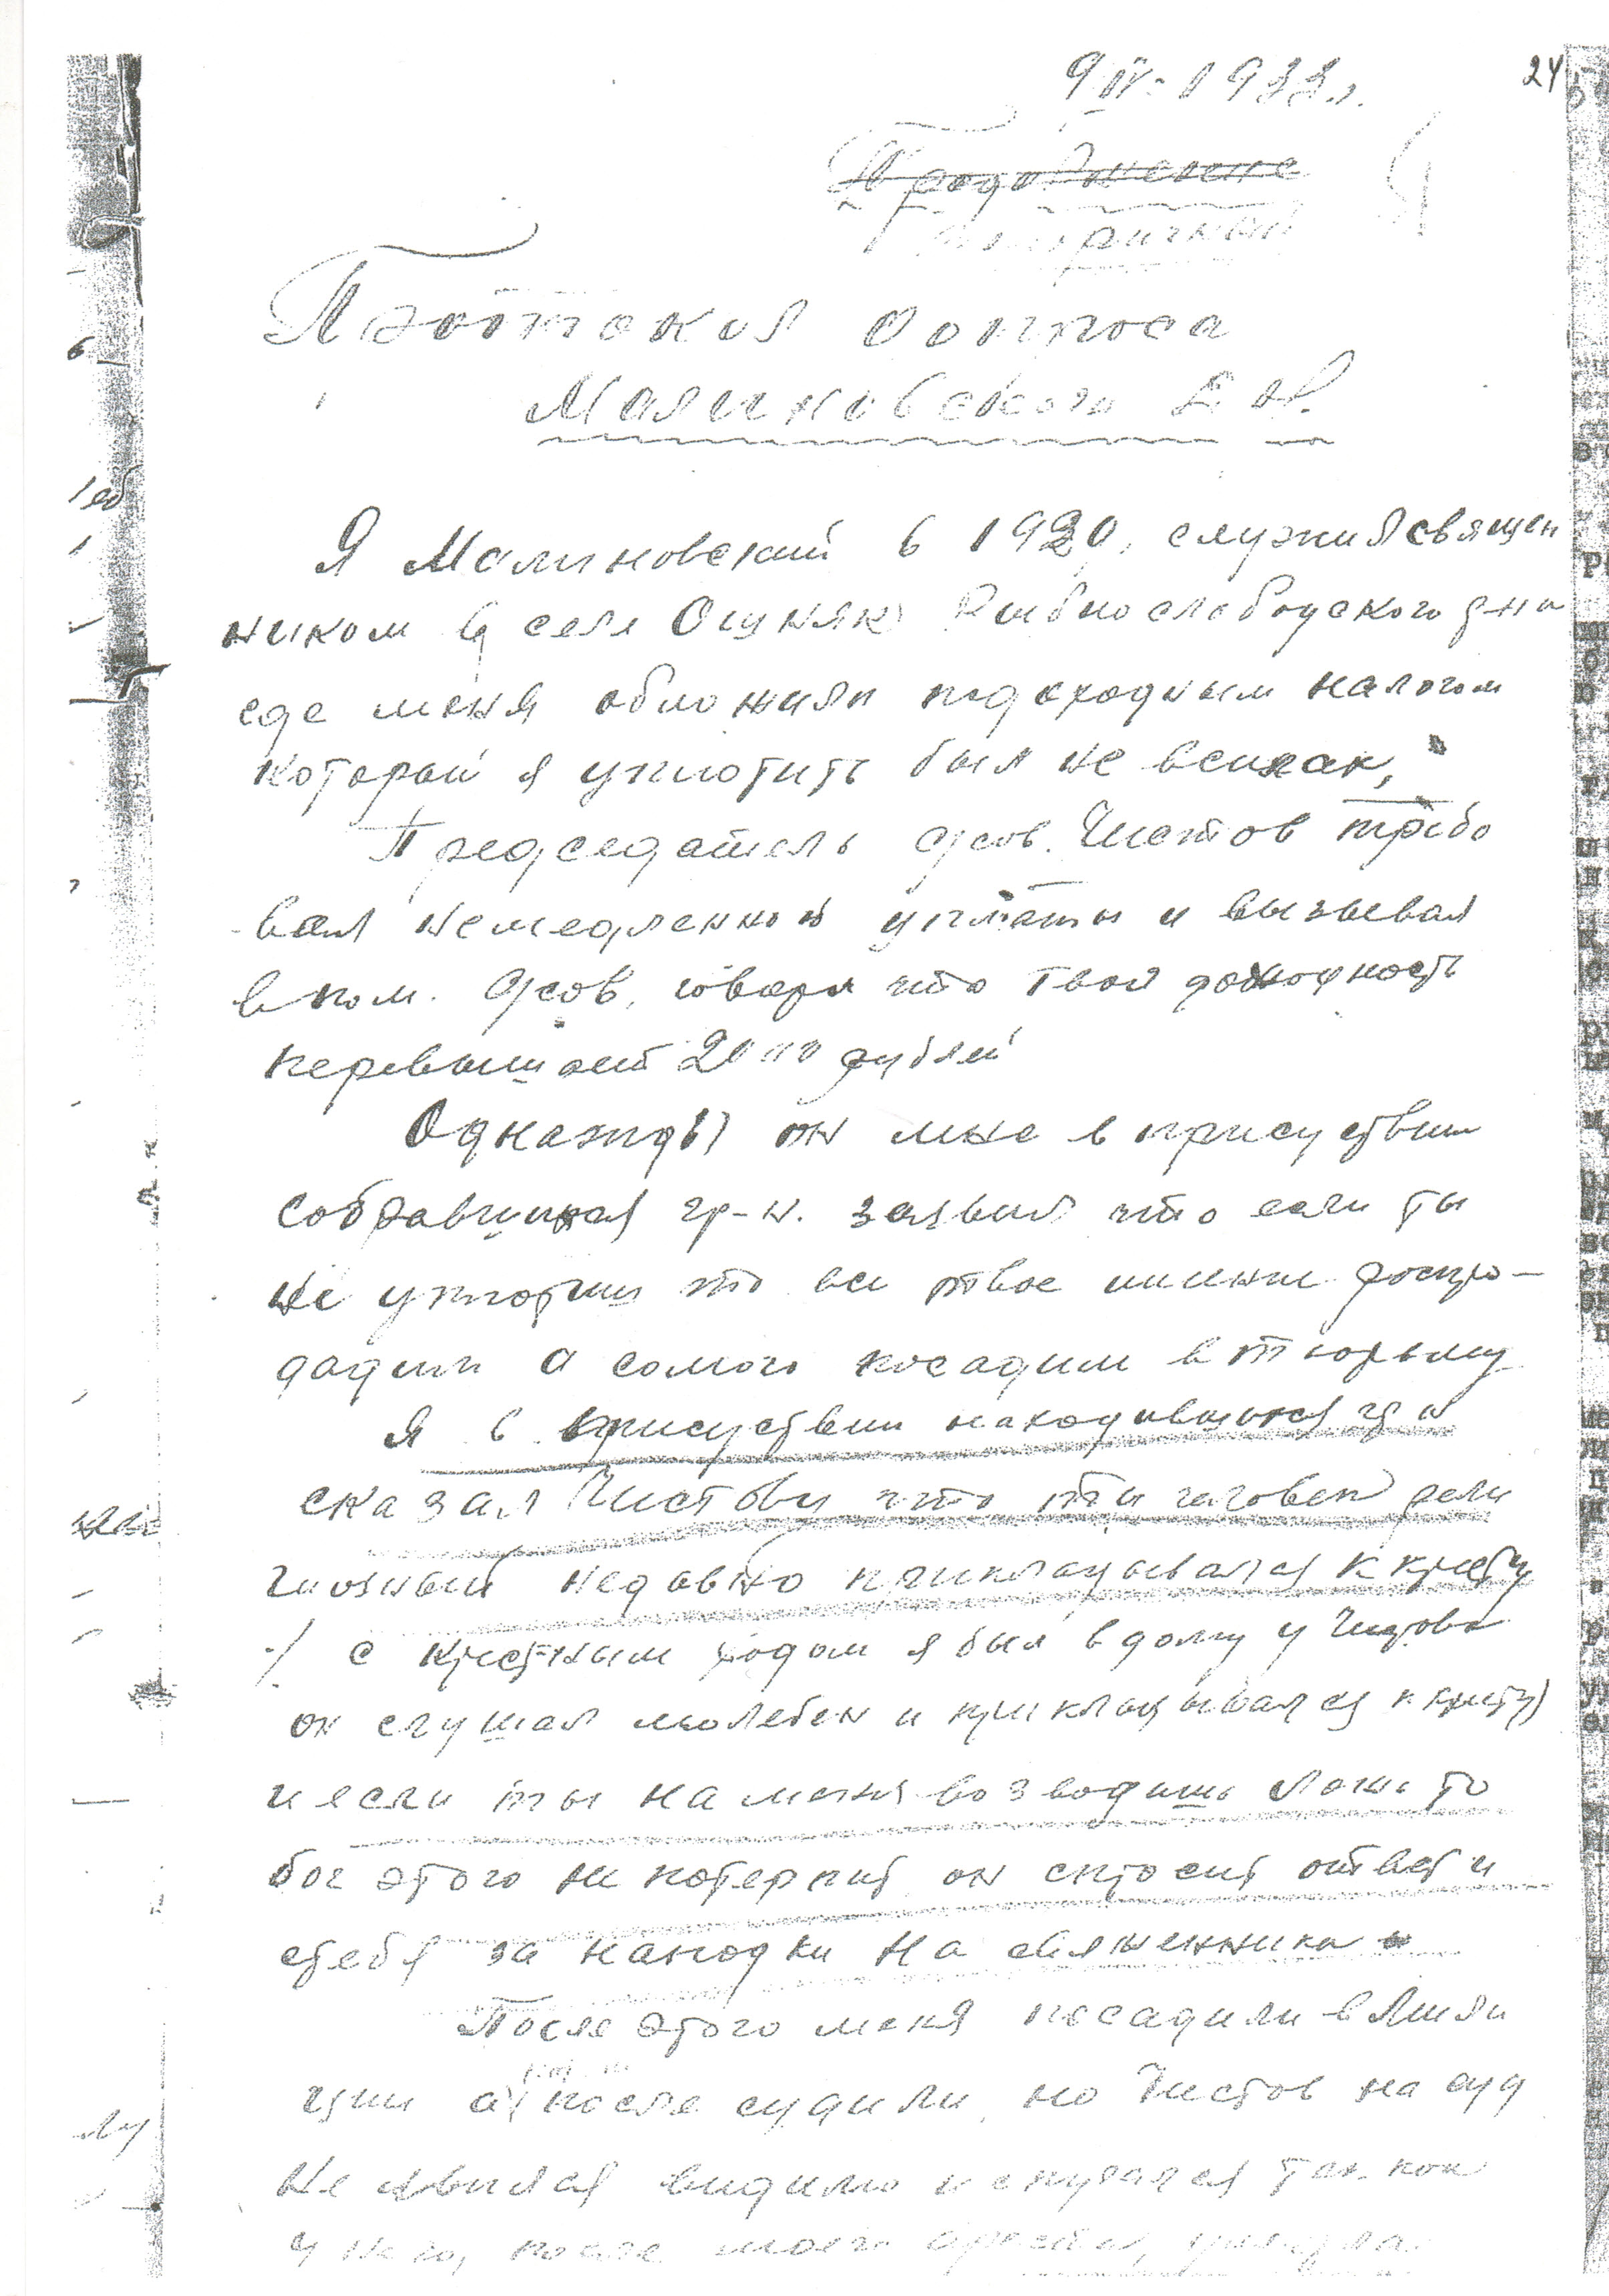 9 IV - 1933 г.
24
Продолжение
Вторичный
Протокол допроса
Малиновского
Я Малиновский в 1930, служил священ
ником в селе Ошняк Рыбнослободского р-на
где меня обложили подоходным налогом
который я уплотить был не
Председатель с/сов. Чистов требо
вал немедленной уплаты и вызывал
в пом. с/сов, говоря что твоя доходность
перевышает 2000 рублей
Однажды он мне в присуствии
собравшихся гр-н. заявил что если ты
не уплотиш то все твое имение распро-
дадим а самого посадим в тюрьму
Я в присуствии находившихся гр н
сказал Чистову что ты человек рели
гиозный недавно прикладывался к кресту
/ с крестным ходом я был в дому у Чистова
он слушал молебен и прикладывался к кресту)
и если ты на меня возводишь ложь то
бог этого не потерпит он спросит ответ и
с тебя за нападки на священника
После этого меня посадили в
ции а после судили, но Чистов на суд
не явился видимо испугался так как
у него, после моего ареста,